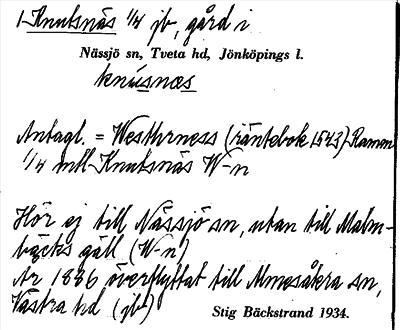 1 Knutsnäs 1/4 jb, gård i
Nässjö sn, Tveta hd, Jönköpings l.
knúsnæs
Antagl. = Westhrness (räntebok 1543) Raman
1/4 mtl Knutsnäs W-n
Hör ej till Nässjö sn, utan till Malm-
bäcks gäll (W-n)
Är 1886 överflyttat till Almesåkra sn,
Västra hd (jb)
Stig Bäckstrand 1934.